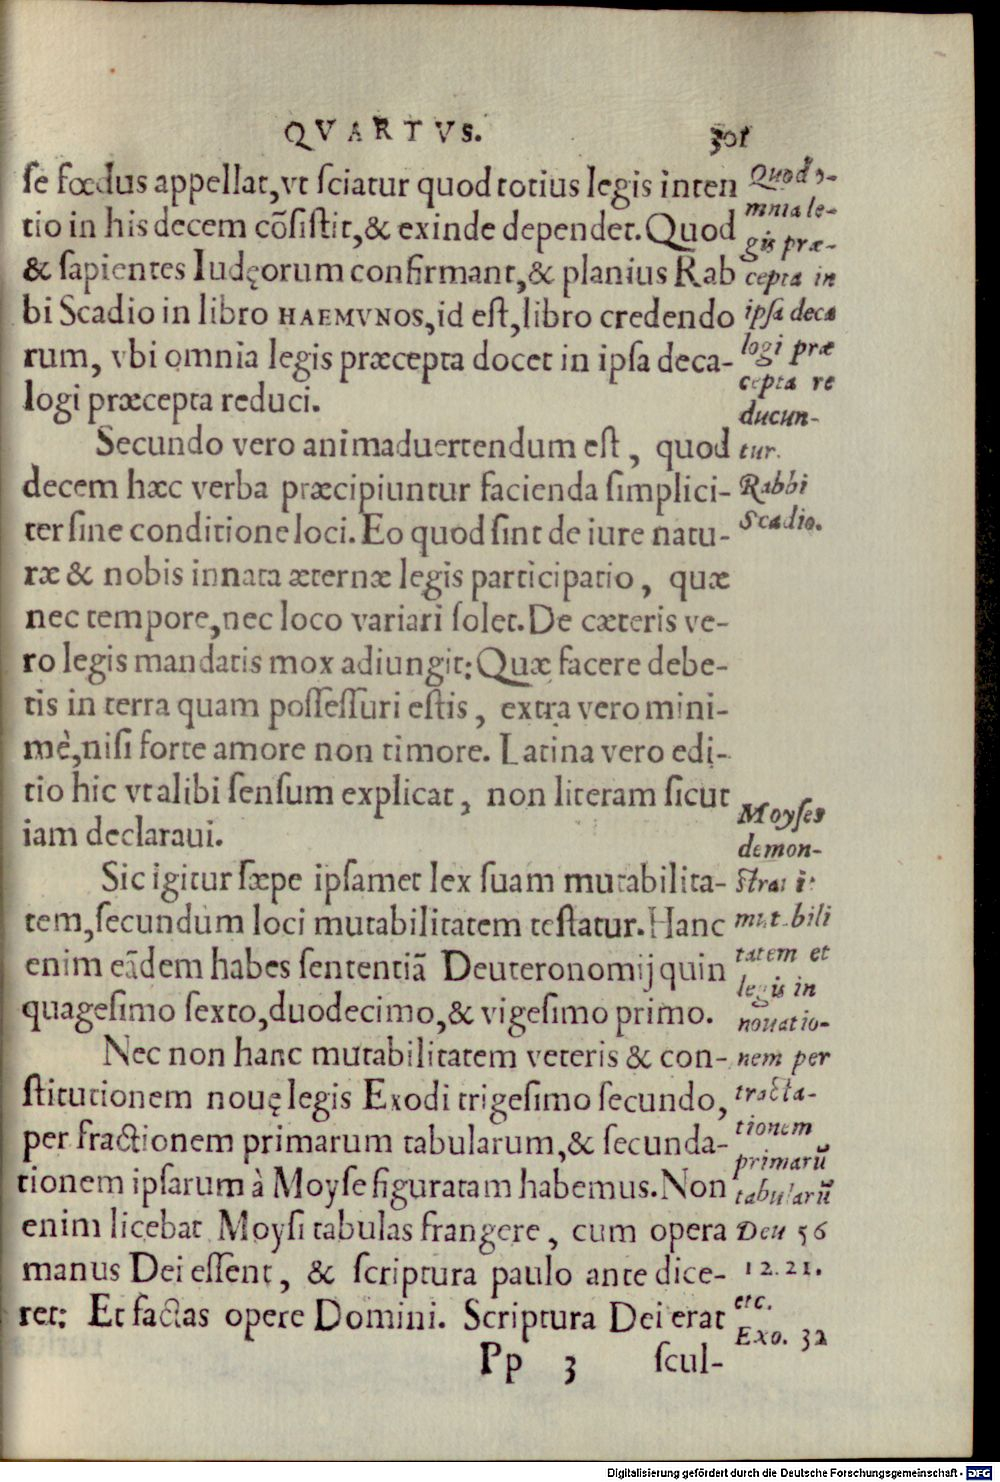 QVARTVS. 301
ſe fœdus appellat,vt ſciatur quod totius legis inten
tio in his decem cõſiſtit,& exinde dependet.Quod
& ſapientes Iudęorum confirmant,& planius Rab
bi Scadio in libro HAEMVNOS,id eſt,libro credendo
rum, vbi omnia legis præcepta docet in ipſa deca-
logi præcepta reduci.
Secundo vero animaduertendum eſt, quod
decem hæc verba præcipiuntur facienda ſimplici-
ter ſine conditione loci. Eo quod ſint de iure natu-
ræ & nobis innata æternæ legis participatio, quæ
nec tempore,nec loco variari ſolet.De cæteris ve-
ro legis mandatis mox adiungit: Quæ facere debe-
tis in terra quam poſſeſſuri eſtis, extra vero mini-
mè,niſi forte amore non timore. Latina vero edi-
tio hic vt alibi ſenſum explicat, non literam ſicut
iam declaraui.
Sic igitur ſæpe ipſamet lex ſuam mutabilita-
tem,ſecundum loci mutabilitatem teſtatur.Hanc
enim eãdem habes ſententiã Deuteronomij quin
quageſimo ſexto,duodecimo,& vigeſimo primo.
Nec non hanc mutabilitatem veteris & con-
ſtitutionem nouę legis Exodi trigeſimo ſecundo,
per fractionem primarum tabularum,& ſecunda-
tionem ipſarum à Moyſe figuratam habemus.Non
enim licebat Moyſi tabulas frangere, cum opera
manus Dei eſſent, & ſcriptura paulo ante dice-
ret: Et factas opere Domini. Scriptura Dei erat
Pp 3 ſcul-
Quod o-
mnia le-
gis præ-
cepta in
ipſa deca
logi præ
cepta re
ducun-
tur.
Rabbi
Scadio.
Moyſes
demon-
ſtrat
mutabili
tatem et
legis in
nouatio-
nem per
tracta-
tionem
primarũ
tabularũ
Deu 56
12.21.
etc.
Exo. 32